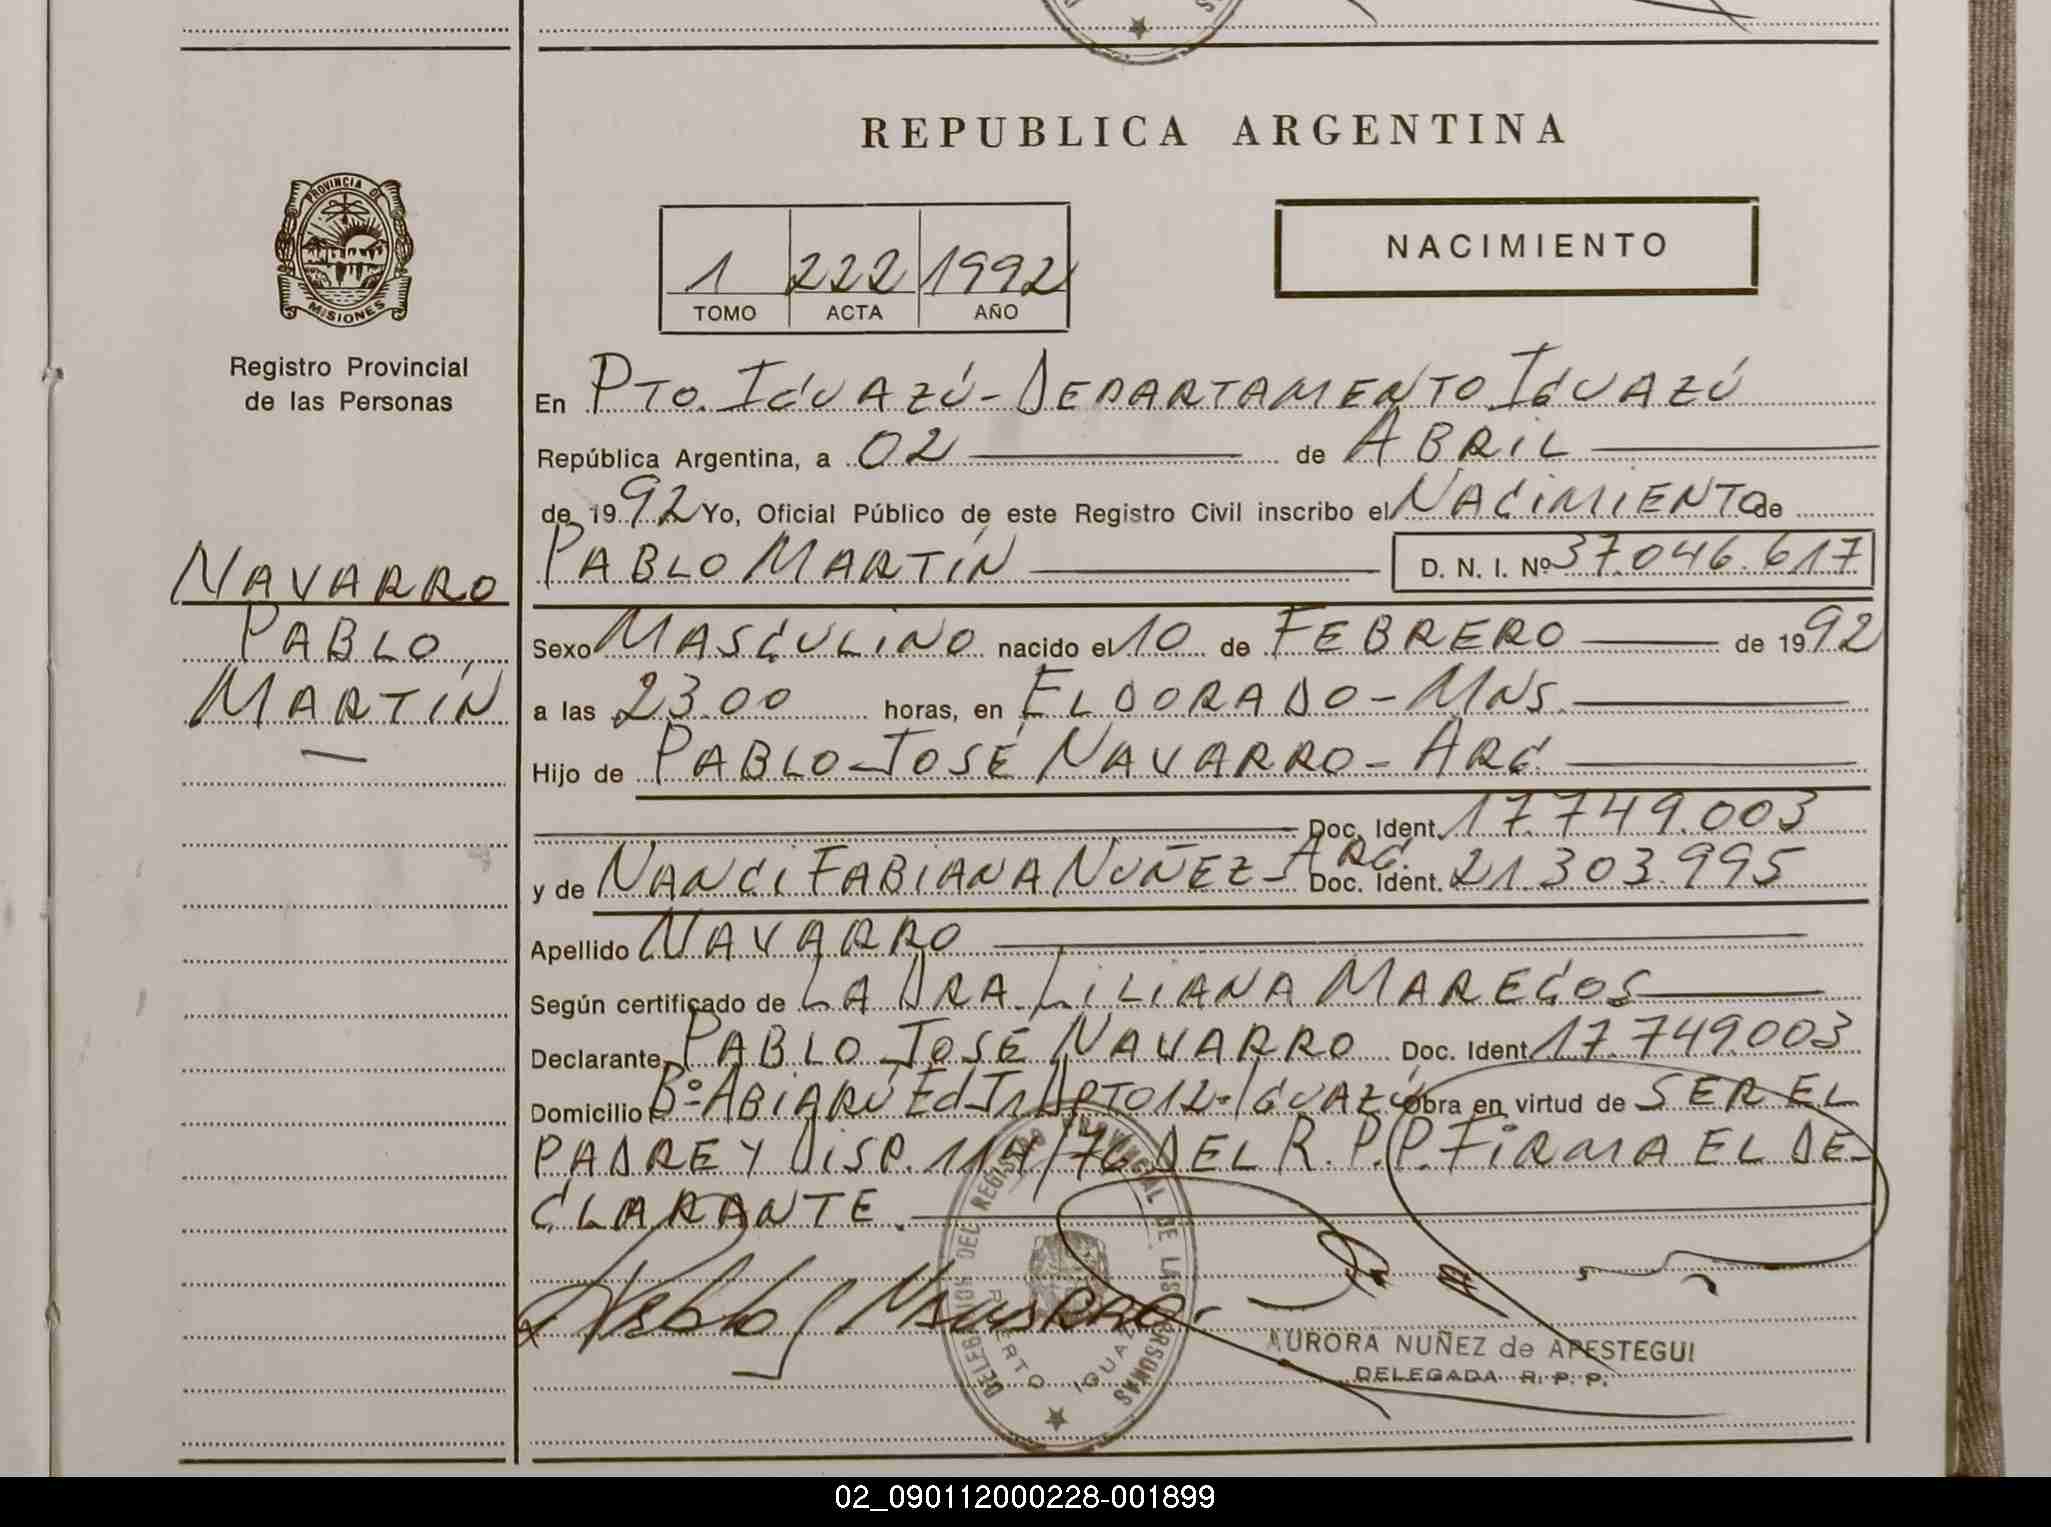 REPUBLICA ARGENTINA
PROVINCIA DE
MISIONES
Registro Provincial
de las Personas
NAVARRO
PABLO
MARTÍN
1 222 1992
TOMO ACTA AÑO
NACIMIENTO
En PTO. IGUAZÚ - DEPARTAMENTO IGUAZÚ
República Argentina, a 02 de ABRIL
de 1992 Yo, Oficial Público de este Registro Civil inscribo el NACIMIENTO de
PABLO MARTÍN D. N. I. Nº 37.046.617
Sexo MASCULINO nacido el 10 de FEBRERO de 1992
a las 23.00 horas, en ELDORADO - MNS.
Hijo de PABLO JOSÉ NAVARRO - ARG.
Doc. Ident. 17.749.003
y de NANCI FABIANA NUÑEZ - ARG. Doc. Ident. 21.303.995
Apellido NAVARRO
Según certificado de LA DRA. LILIANA MARECOS
Declarante PABLO JOSÉ NAVARRO Doc. Ident. 17.749.003
Domicilio Bº ABIARÚ Ed J1 DPTO 12 - IGUAZÚ Obra en virtud de SER EL
PADRE Y DISP. 114/76 DEL R.P.P. FIRMA EL DE-
CLARANTE.
Pablo J Navarro
DELEGACION DEL REGISTRO PROVINCIAL DE LAS PERSONAS
PUERTO IGUAZU
AURORA NUÑEZ de APESTEGUI
DELEGADA R. P. P.
02_090112000228-001899